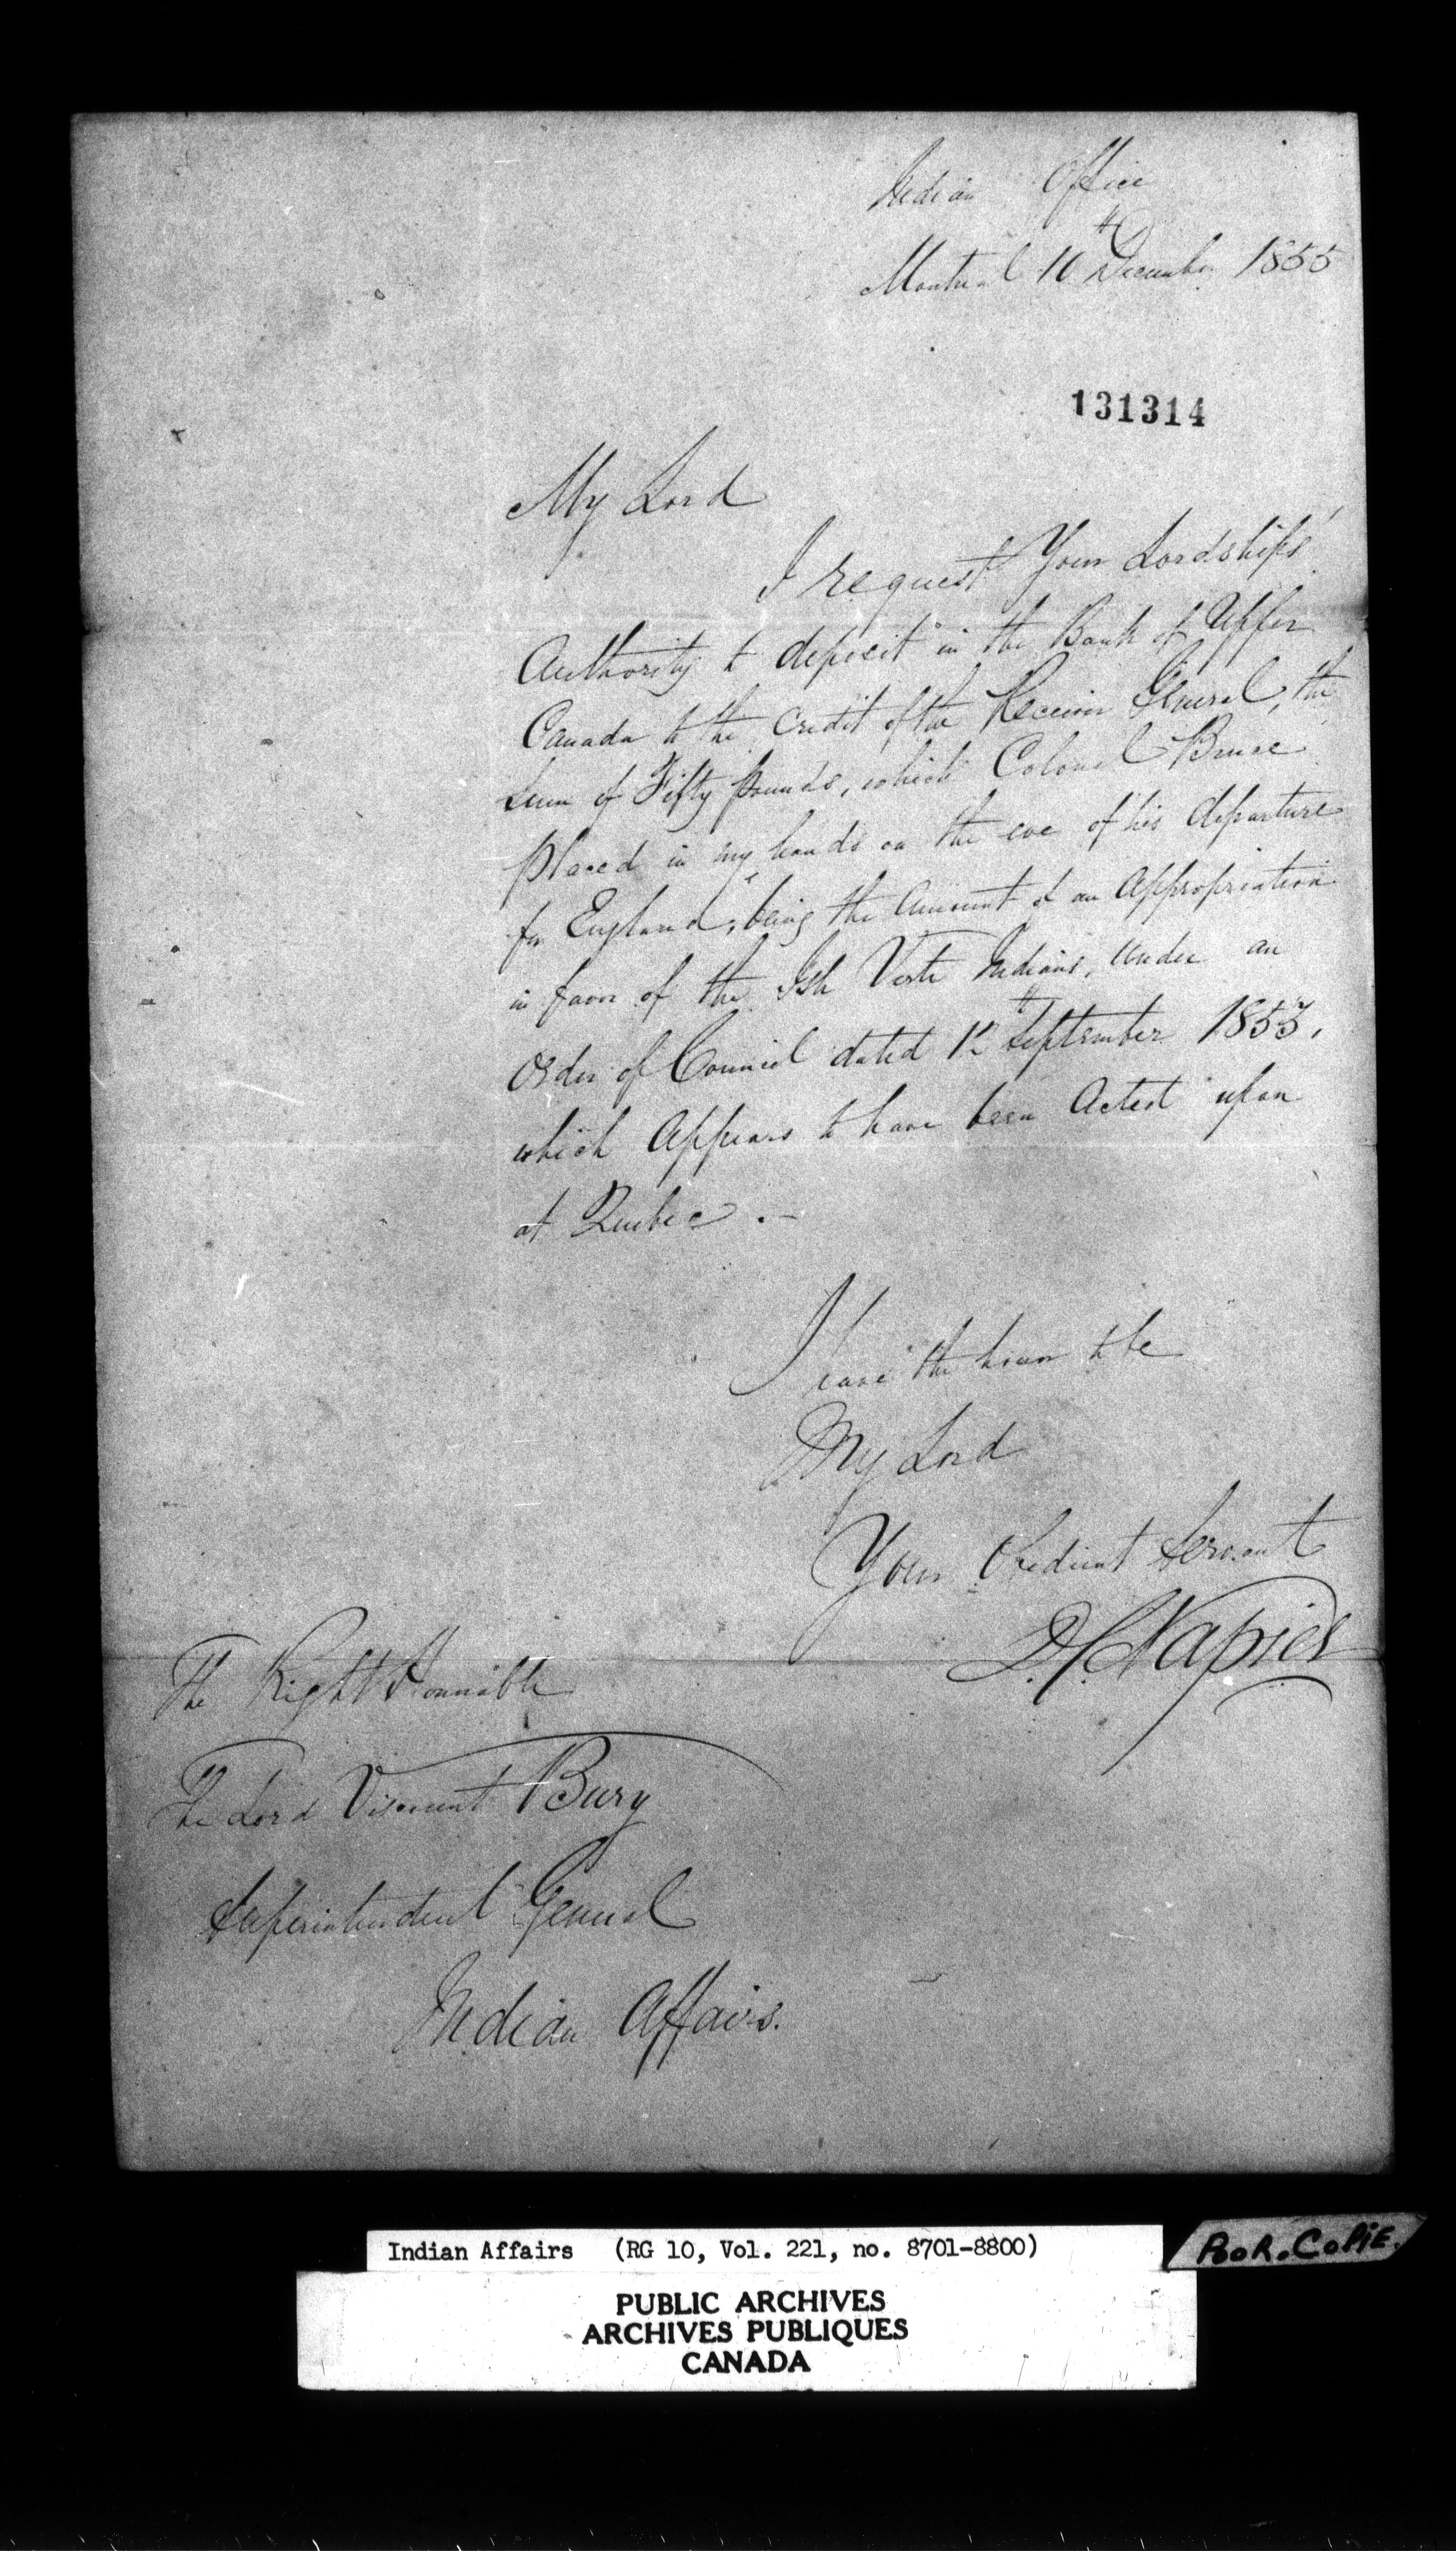 Indian Office
Montreal 10th December 1855
131314
My Lord
I request Your Lordships'
Authority to deposit in the Bank of Upper
Canada to the Credit of the Receiver General, the
Sum of Fifty pounds, which Colonel Bruce
placed in my hands on the eve of his departure
for England, being the Amount of an Appropriation
in favor of the Isle Verte Indians, under an
Order of Council dated September 1853,
which Appears to have been Acted upon
at Quebec . –
I have the honor to be
My Lord
Your Obedient Servant
D C Napier
The Right Honorable
The Lord Viscount Bury
Superintendent General
Indian Affairs.
Indian Affairs (RG 10, Vol. 221, no. 8701-8800)
PooR. CoPiE.
PUBLIC ARCHIVES
ARCHIVES PUBLIQUES
CANADA